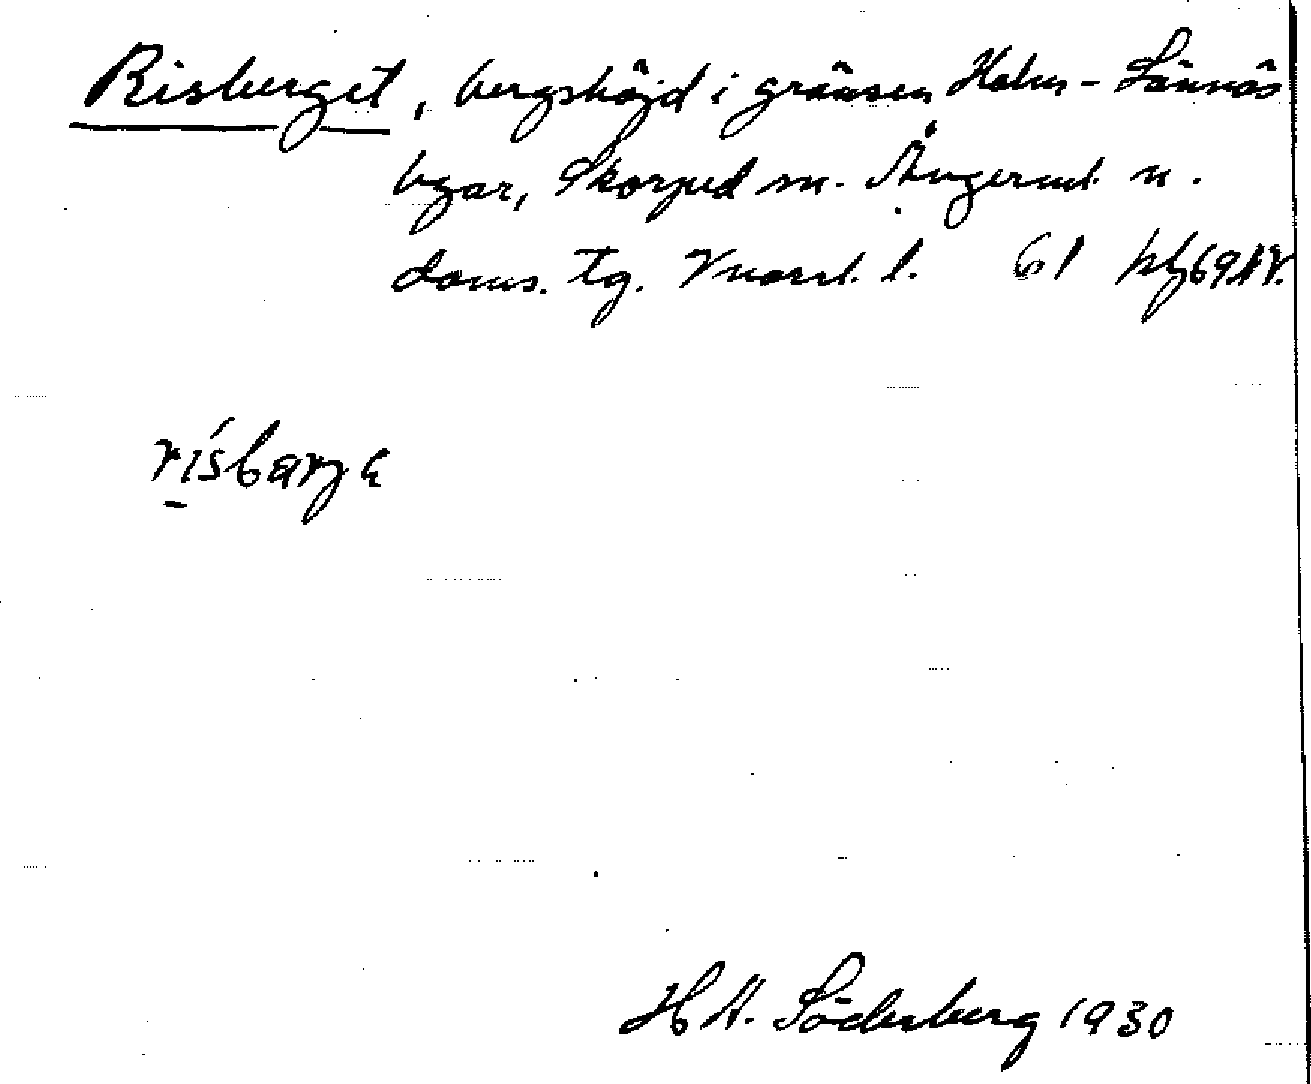 Risberget, bergshöjd i gränsen Holm - Lännäs
byar, Skorped sn. Ångerml. n.
doms. tg. Vnorrl. l. 61 hbf 69
rísbarja
H A. Söderberg 1930